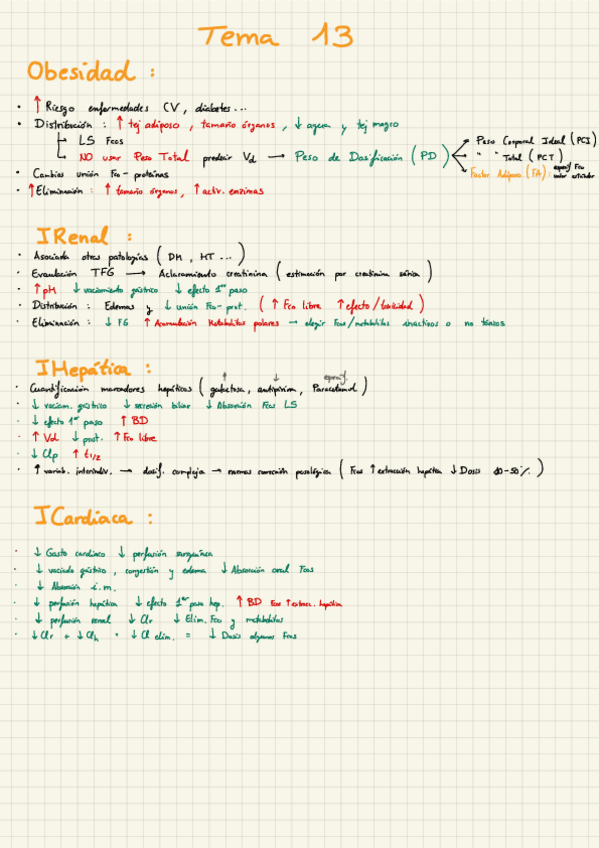 Tema 13
Obesidad :
· ↑ Riesgo enfermedades CV, diabetes...
· Distribución : ↑ tej adiposo, tamaño órganos, ↓ agua y tej magro
LS Fcos
NO usar Peso Total predecir Vd → Peso de Dosificación (PD)
Peso Corporal Ideal (PCI)
" " Total (PCT)
Factor Adiposo (FA) :
· Cambios unión Fco - proteínas
· ↑ Eliminación : ↑ tamaño órganos, ↑ activ. enzimas
IRenal :
· Asociada otras patologías (DM, HT ...)
· Evaluación TFG → Aclaramiento creatinina (estimación por creatinina sérica)
· ↑ pH ↓ vaciamiento gástrico ↓ efecto 1er paso
· Distribución : Edemas y ↓ unión Fco-prot. (↑ Fco libre ↑ efecto/toxicidad)
· Eliminación : ↓ FG ↑ Acumulación Metabolitos polares → elegir Fcos/metabolitos inactivos o no tóxicos
IHepática :
· Cuantificación marcadores hepáticos (galactosa, antipirina, Paracetamol)
· ↓ vaciam. gástrico ↓ secreción biliar ↓ Absorción Fcos LS
· ↓ efecto 1er paso ↑ BD
· ↑ Vd ↓ prot. ↑ Fco libre
· ↓ Clp ↑ t1/2
· ↑ variab. interindiv. → dosif. compleja → normas corrección posológica (Fcos ↑ extracción hepática ↓ Dosis 10-50%)
ICardiaca :
· ↓ Gasto cardiaco ↓ perfusión sanguínea
· ↓ vaciado gástrico, congestión y edema ↓ Absorción oral Fcos
· ↓ Absorción i.m.
· ↓ perfusión hepática ↓ efecto 1er paso hep. ↑ BD Fcos ↑ extracc. hepática
· ↓ perfusión renal ↓ Clr ↓ Elim. Fco y metabolitos
· ↓ Clr + ↓ Clh = ↓ Cl elim. = ↓ Dosis algunos Fcos